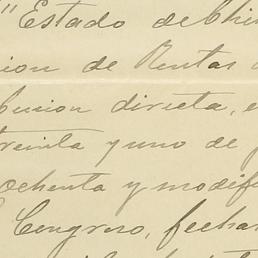 "Estado de Chi
ion de Rentas
bucion directa, e
treinta y uno de
ochenta y modifi
Congreso, fecha